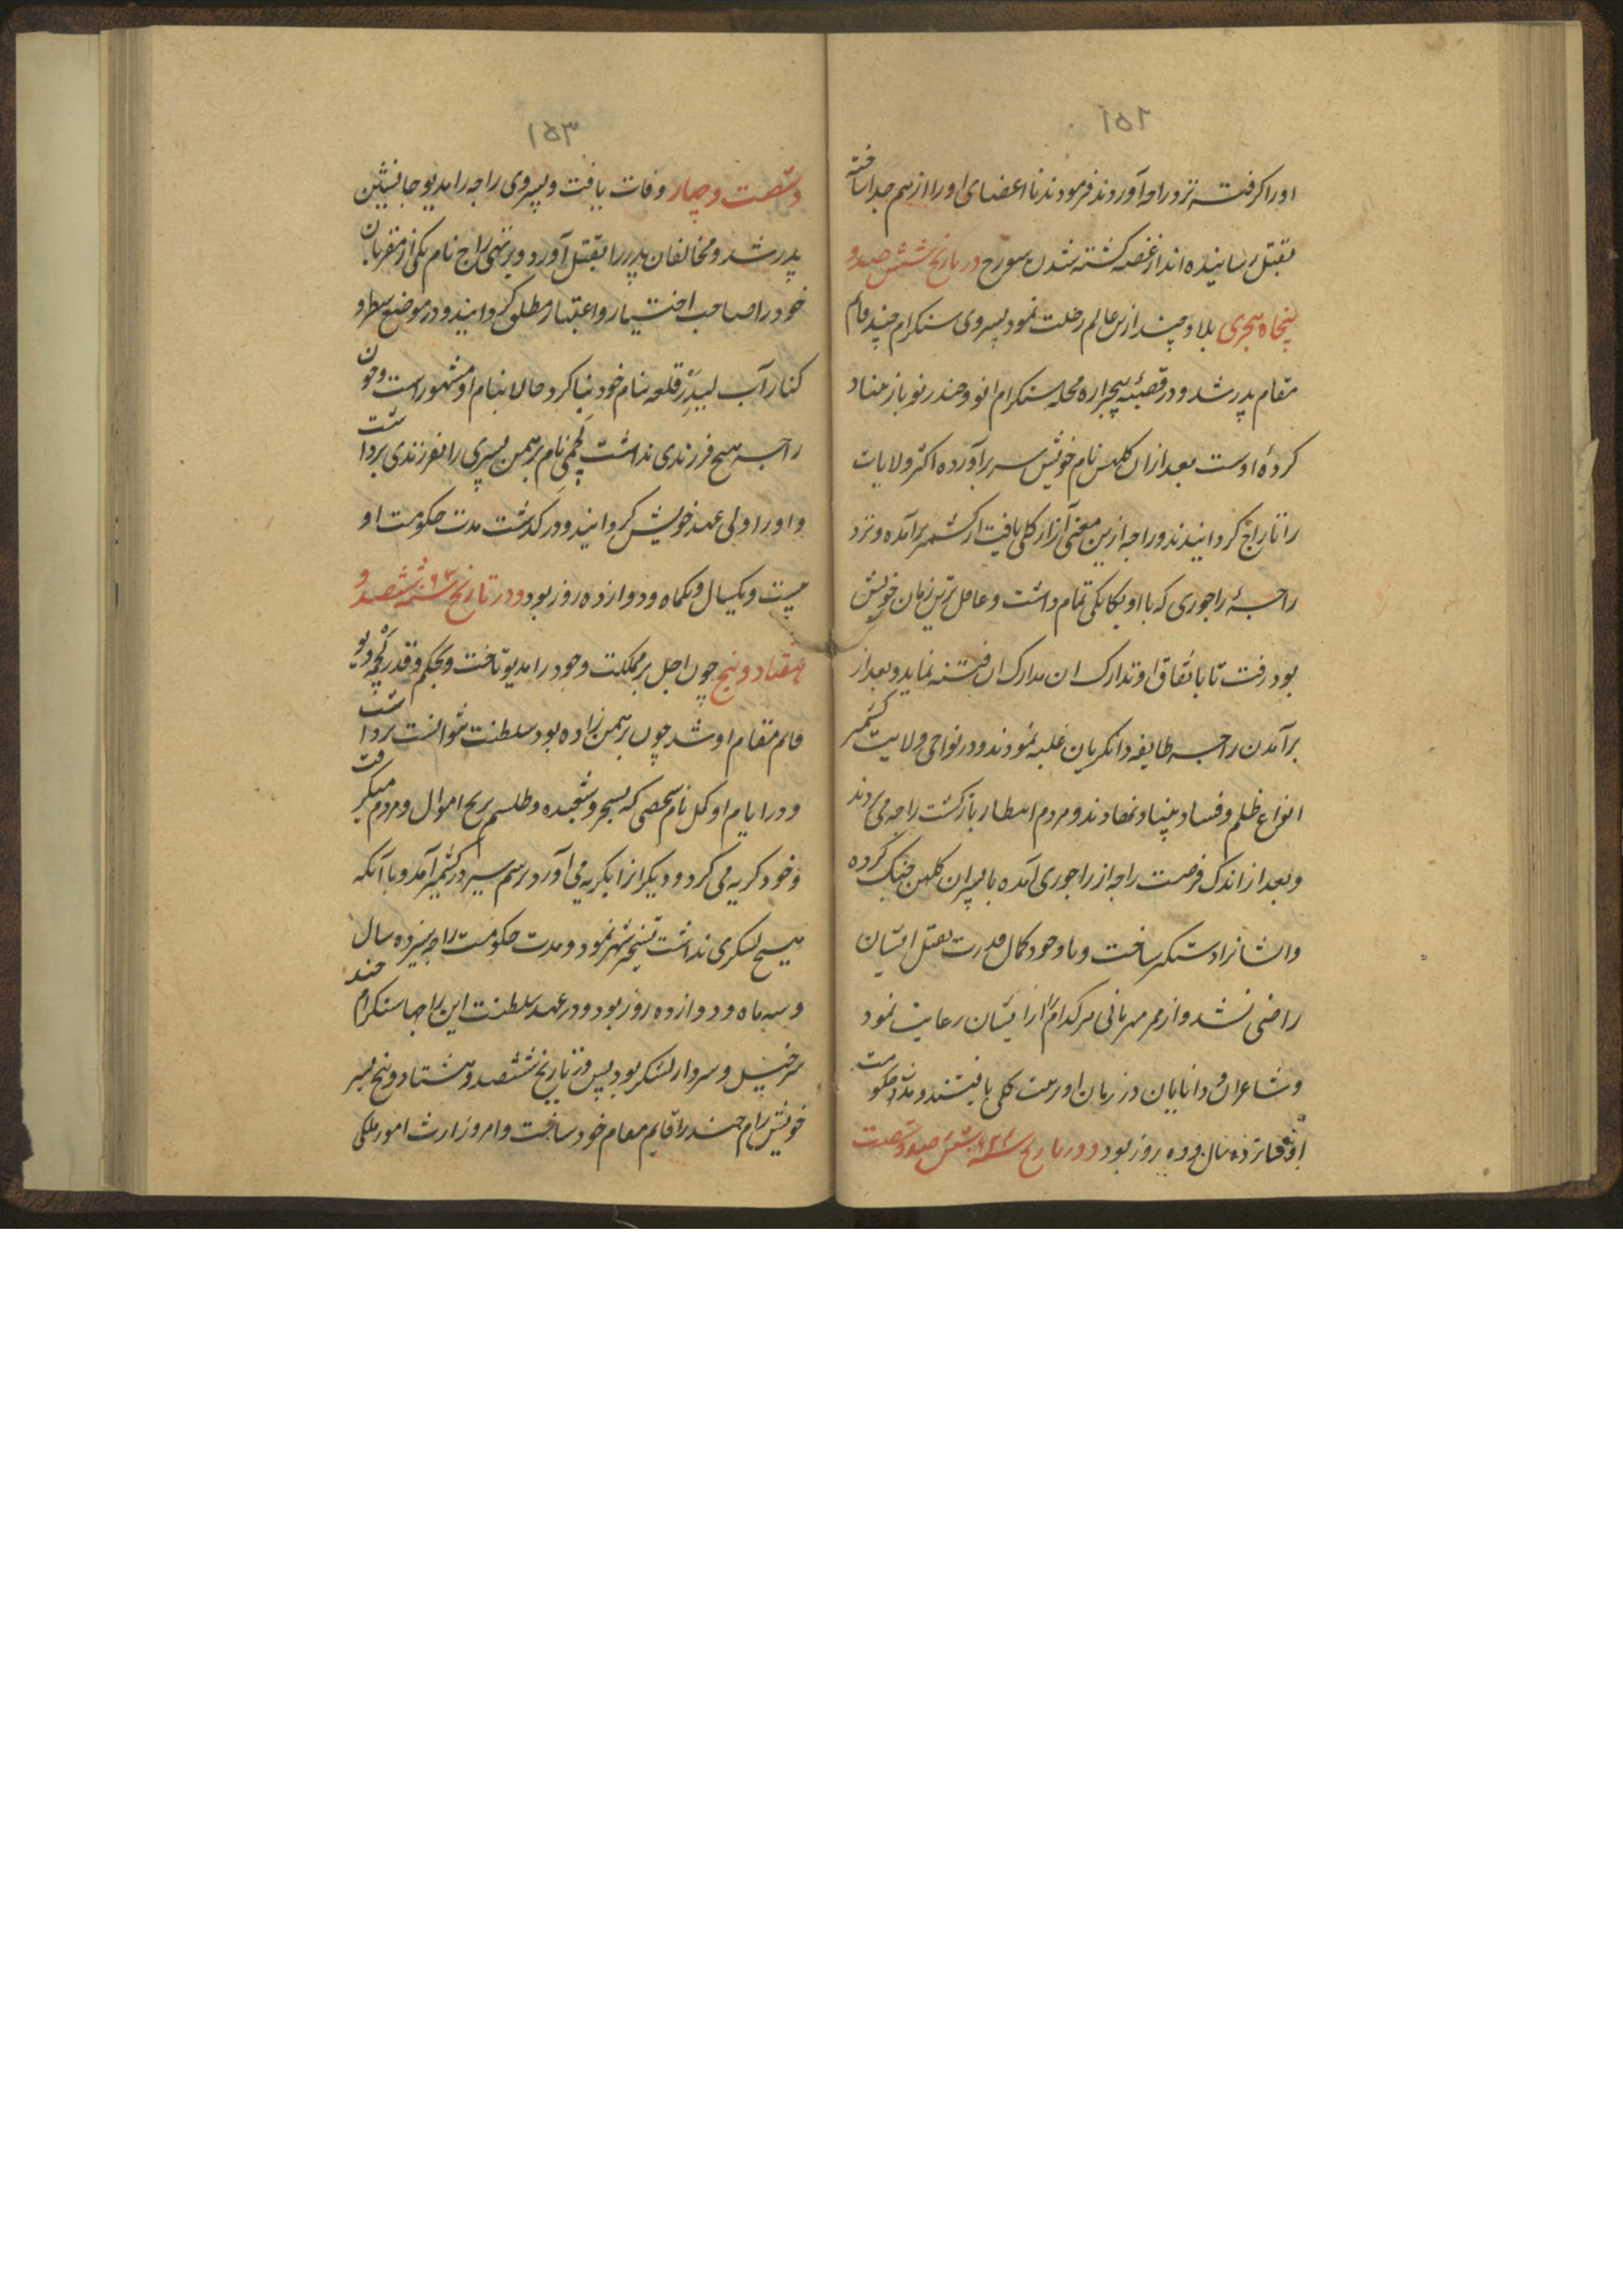 اورا گرفته نزد راجه آوردند فرمودند تا اعضای اورا از هم جدا ساخته
بقتل رسانیده اند از غصه کشته شدن سورج در تاریخ شش صد و
پنجاه هجری بلاد چند ازین عالم رحلت نمود پسر وی سنکرام چند قایم
مقام پدر شد و در قصبهٔ بیجبراره محله سنکرام انو و چندر نو باز بنیاد
کردهٔ اوست بعد ازان کلهن نام خویش سر برآورده اکثر ولایات
را تاراج کردانیدند و راجه ازین معنی آزار کلی یافت از کشمیر برآمده و نزد
راجهٔ راجوری که با او یکانکی تمام داشت و عاقل ترین زمان خویش
بود رفت تا باتفاق او تدارک ان فتنه نماید و بعد از
برآمدن راجه طایفه دانکریان غلبه نمودند و در نواحی ولایت کشمیر
انواع ظلم و فساد بنیاد نهادند و مردم انتظار بازکشت راجه می بردند
و بعد از اندک فرصت راجه از راجوری آمده با پسران کلهن جنک کرده
وایشانرا دستکیر ساخت و با وجود کمال قدرت بقتل ایشان
راضی نشد و از ممر مهربانی هر کدام را از ایشان رعایت نمود
و شاعران و دانایان در زمان او تربیت کلی یافتند و مدت حکومت
او شانزده سال و ده روز بود و در تاریخ شش صد و شصت
۱۵۳
و شصت و چهار وفات یافت و پسر وی راجه رامدیو جانشین
پدر شد و مخالفان پدر را بقتل آورد و پرتهی راج نام یکی از مقربان
خود را صاحب اختیار و اعتبار مطلق کردانید و در موضع
کنار آب لیدر قلعه بنام خود بنا کرد و حالا بنام او مشهور است و چون
راجه هیچ فرزندی نداشت لچمی نام برهمن پسری را بفرزندی برداشت
و اورا ولی عهد خویش کردانید و در کذشت مدت حکومت او
بیست و یکسال و یکماه و دوازده روز بود و در تاریخ سنه ششصد و
هفتاد و پنج چون اجل بر مملکت وجود رامدیو تاخت و بحکم و قدر لچه دیو
قایم مقام او شد چون برهمن زاده بود سلطنت نتوانست برداشت
و در ایام او کجل نام شخصی که بسحر و شعبده و طلسم اموال و مردم میکرفت
و خود کریه می کرد و دیکرانرا بکریه می آورد برسم سیر در کشمیر آمد و با آنکه
هیچ لشکری نداشت تسخیر شهر نمود و مدت حکومت راجه سیزده سال
و سه ماه و دوازده روز بود و در عهد سلطنت این راجها سنکرام چند
سرخیل و سردار لشکر بود پس در تاریخ ششصد و هشتاد و پنج پسر
خویش رام چند را قایم مقام خود ساخت و امر وزارت امور ملکی